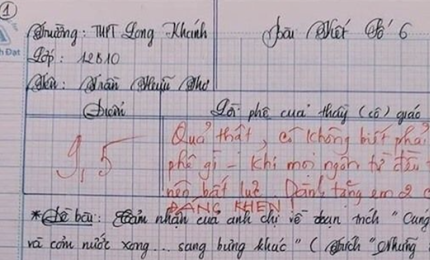 1
h Đạt
Trường: THPT Long Khánh
Bài Viết Số 6
Lớp: 12B10
Tên: Trần Hữu Thơ
Điểm
Lời phê của thầy (cô) giáo
9,5
Quả thật, cô không biết phải
phê gì - khi mọi ngôn từ đều
nên bất lực. Dành tặng em 2 c
ĐÁNG KHEN!
* Đề bài: Cảm nhận của anh chị về đoạn trích "Cúng
và cơm nước xong... sang bưng khác" ( trích "Những